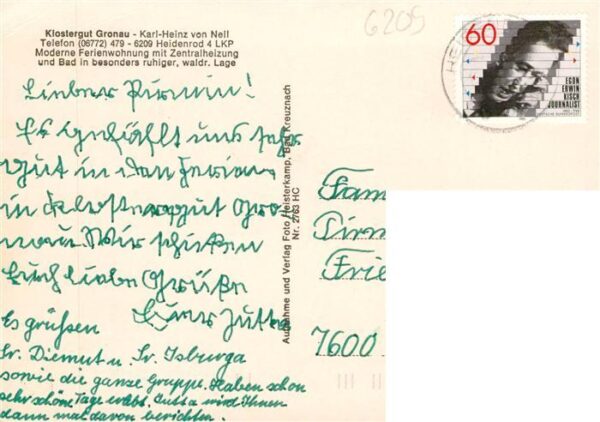 Klostergut Gronau - Karl-Heinz von Nell
Telefon (06772) 479 - 6209 Heidenrod 4 LKP
Moderne Ferienwohnung mit Zentralheizung
und Bad in besonders ruhiger, waldr. Lage
6209
60
EGON
ERWIN
KISCH
JOURNALIST
DEUTSCHE BUNDESPOST
HEI
Lieber Pirmin!
Es gefällt uns sehr
gut in den Ferien
in Klostergut Gro-
nau. Wir schicken
Euch liebe Grüße
Eure Jutta
Es grüßen
Sr. Diemut u. Sr. Isburga
sowie die ganze Gruppe. Haben schon
sehr schöne Tage erlebt. Jutta wird Ihnen
dann mal davon berichten.
Aufnahme und Verlag Foto Heisterkamp, Bad Kreuznach
Nr. 2763 HC
Fam
Pirm
Frie
7600